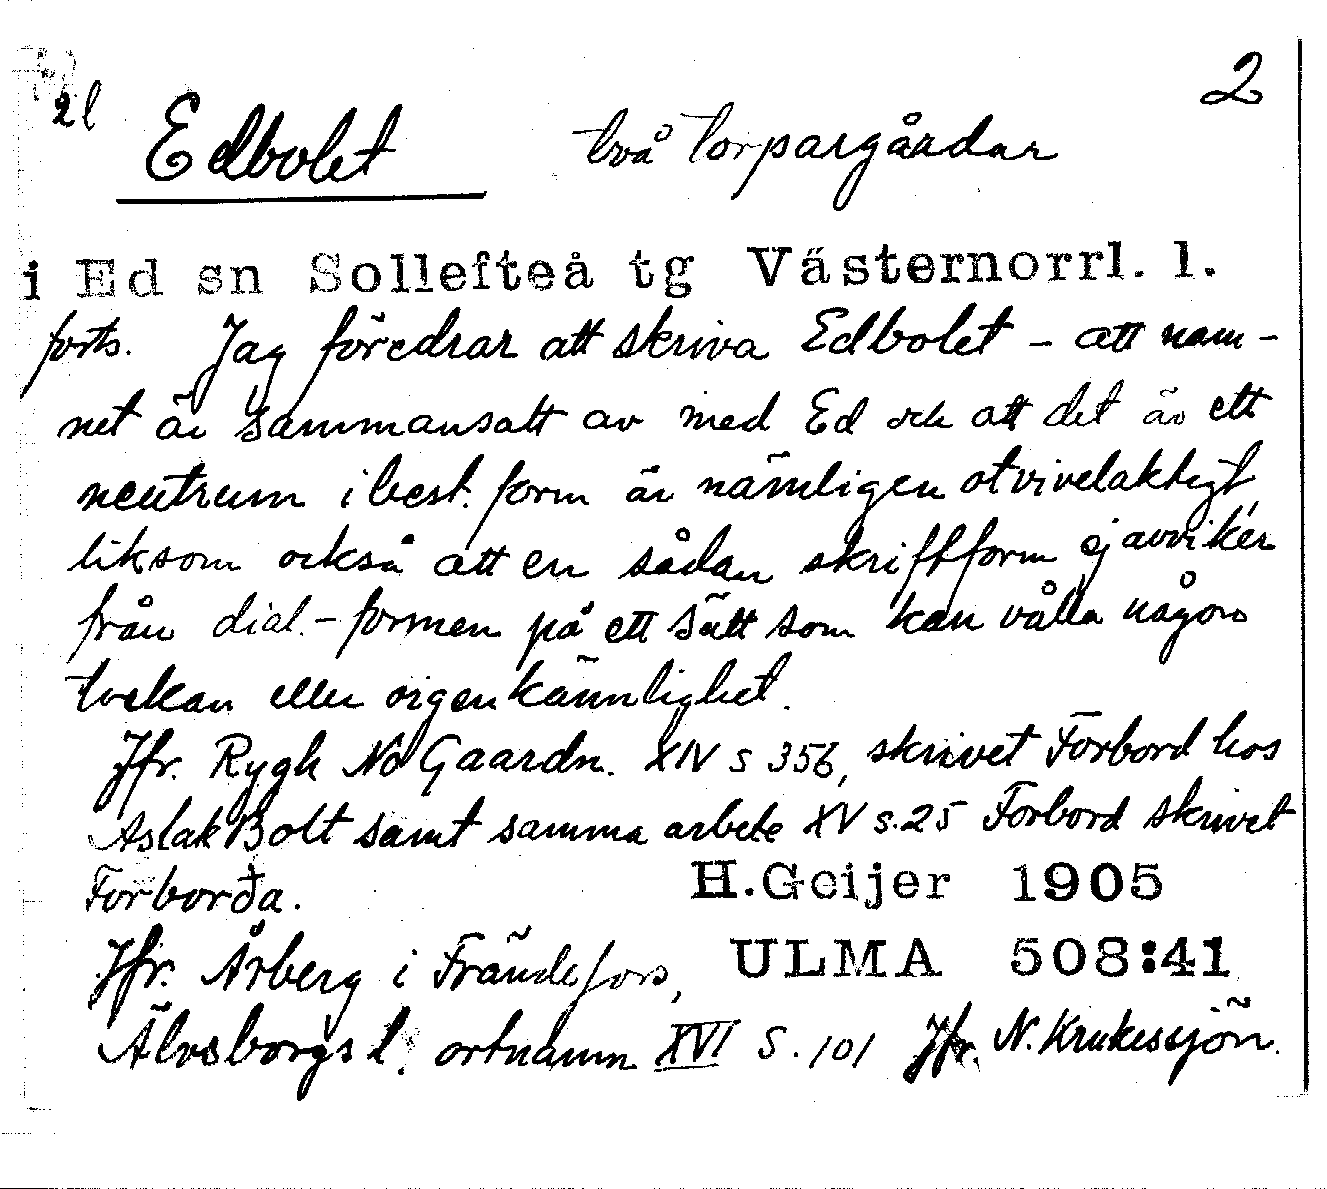 2
2l Edbolet två torpargårdar
i Ed sn Sollefteå tg Västernorrl. l.
forts. Jag föredrar att skriva Edbolet - att nam-
net är sammansatt av med Ed och att det är ett
neutrum i best. form är nämligen otvivelaktigt,
liksom också att en sådan skriftform ej avviker
från dial.-formen på ett sätt som kan vålla någon
tvekan eller oigenkännlighet.
Jfr. Rygh No Gaardn. XIV s 356, skrivet Forbord hos
Aslak Bolt samt samma arbete XV s.25 Forbord skrivet
Forborđa. H.Geijer 1905
Jfr. Årberg i Frändefors, ULMA 508:41
Älvsborgs l. ortnamn XVI S. 101 Jfr. N. Krukessjön.